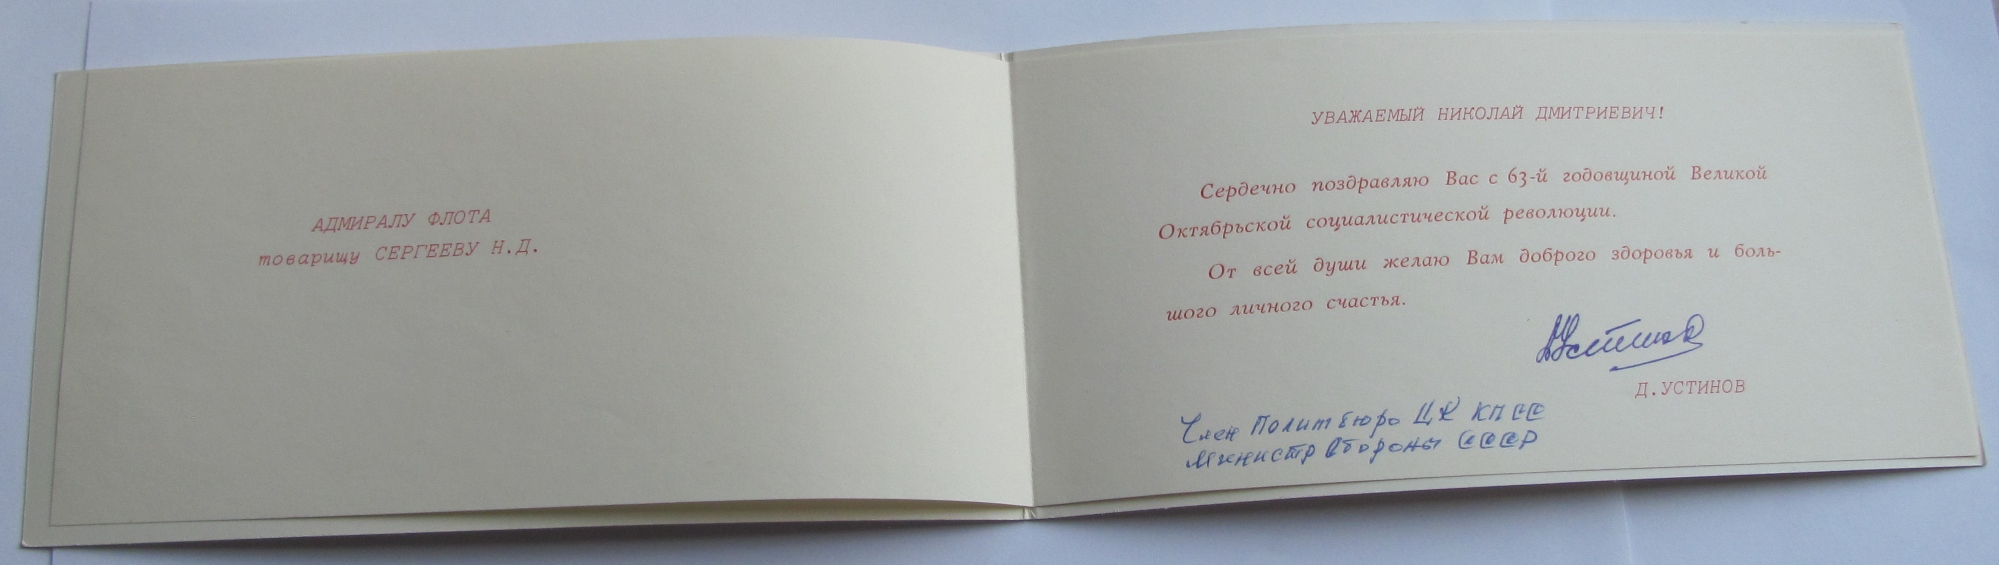 АДМИРАЛУ ФЛОТА
товарищу СЕРГЕЕВУ Н.Д.
УВАЖАЕМЫЙ НИКОЛАЙ ДМИТРИЕВИЧ!
Сердечно поздравляю Вас с 63-й годовщиной Великой
Октябрьской социалистической революции.
От всей души желаю Вам доброго здоровья и боль-
шого личного счастья.
ДУстинов
Д.УСТИНОВ
Член Политбюро ЦК КПСС
Министр Обороны СССР